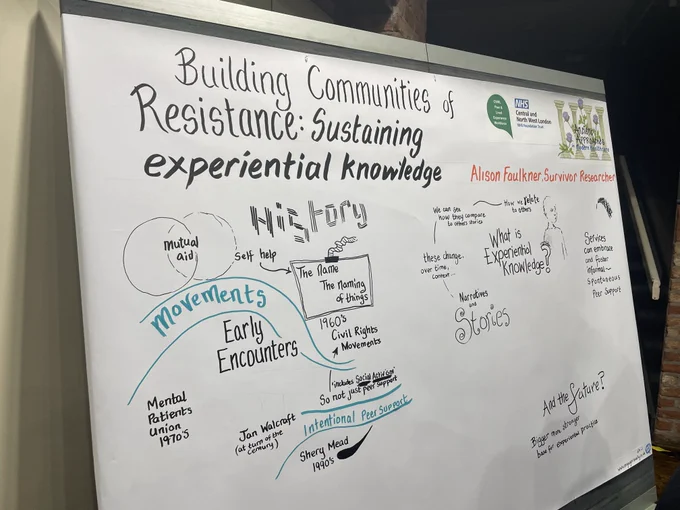 Building 'Communities' of
Resistance: Sustaining
experiential knowledge
NHS
Central and
North West London
NHS Foundation Trust
Alison Faulkner. Survivor Researcher
History
mutual
aid
Self help
The Name
The naming
of things
Movements
Early
Encounters
1960's
Civil Rights
Movements
includes Social Activism
So not just peer support
Mental
Patients
Union
1970's
Jan Walcraft
(at turn of the
century)
Intentional Peer Support
Shery Mead
1990's
We can see
how they compare
to others stories
How we relate
to others
What is
Experiential
Knowledge?
these change..
over time,
context..
Narratives
and
Stories
Services
can embrace
and foster
informal
spontaneous
Peer Support
And the future?
Bigger more stronger
base for experiential practice